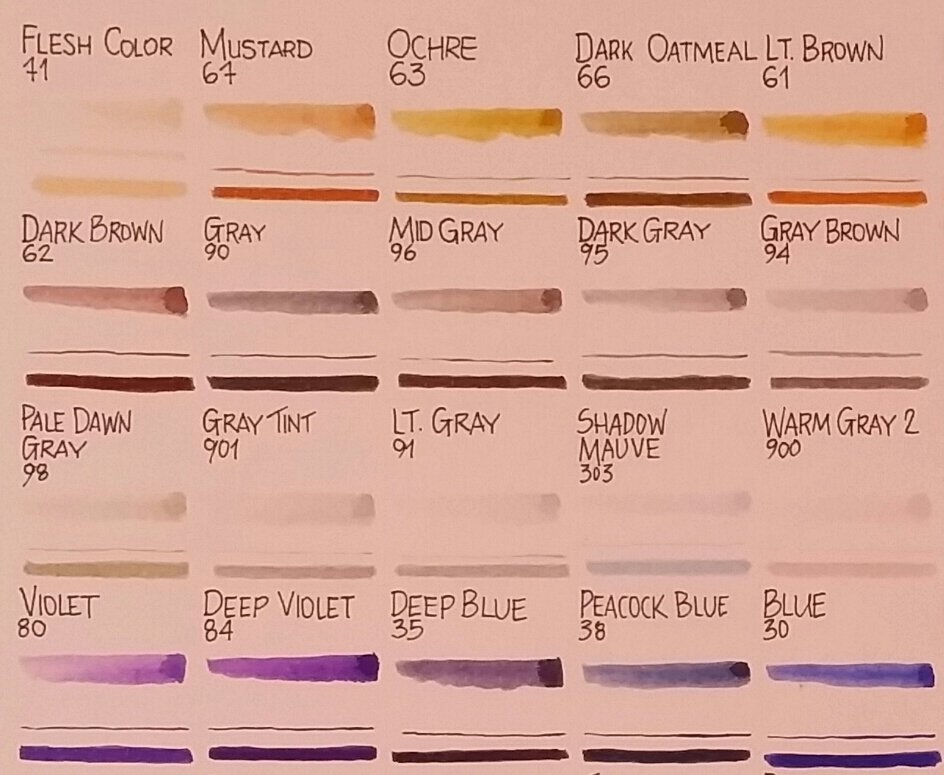 FLESH COLOR
71
MUSTARD
67
OCHRE
63
DARK OATMEAL
66
LT. BROWN
61
DARK BROWN
62
GRAY
90
MID GRAY
96
DARK GRAY
95
GRAY BROWN
94
PALE DAWN
GRAY
98
GRAY TINT
901
LT. GRAY
91
SHADOW
MAUVE
303
WARM GRAY 2
900
VIOLET
80
DEEP VIOLET
84
DEEP BLUE
35
PEACOCK BLUE
38
BLUE
30